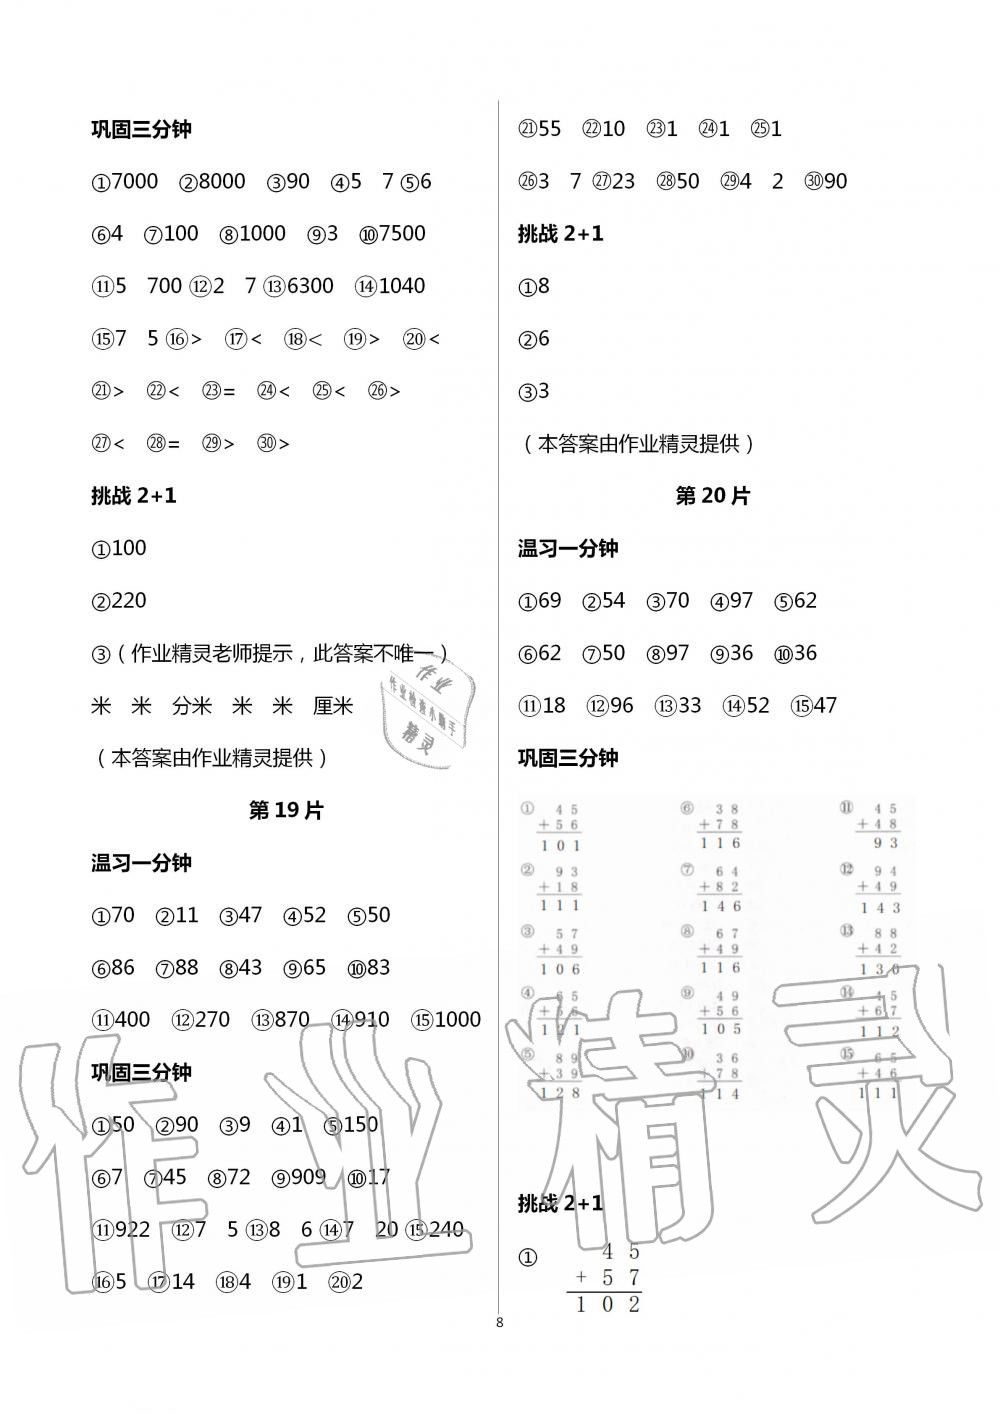 巩固三分钟
①7000 ②8000 ③90 ④5 7 ⑤6
⑥4 ⑦100 ⑧1000 ⑨3 ⑩7500
⑪5 700 ⑫2 7 ⑬6300 ⑭1040
⑮7 5 ⑯> ⑰< ⑱< ⑲> ⑳<
㉑> ㉒< ㉓= ㉔< ㉕< ㉖>
㉗< ㉘= ㉙> ㉚>
挑战 2+1
①100
②220
③（作业精灵老师提示，此答案不唯一）
米 米 分米 米 米 厘米
（本答案由作业精灵提供）
第 19 片
温习一分钟
①70 ②11 ③47 ④52 ⑤50
⑥86 ⑦88 ⑧43 ⑨65 ⑩83
⑪400 ⑫270 ⑬870 ⑭910 ⑮1000
巩固三分钟
①50 ②90 ③9 ④1 ⑤150
⑥7 ⑦45 ⑧72 ⑨909 ⑩17
⑪922 ⑫7 5 ⑬8 6 ⑭7 20 ⑮240
⑯5 ⑰14 ⑱4 ⑲1 ⑳2
㉑55 ㉒10 ㉓1 ㉔1 ㉕1
㉖3 7 ㉗23 ㉘50 ㉙4 2 ㉚90
挑战 2+1
①8
②6
③3
（本答案由作业精灵提供）
第 20 片
温习一分钟
①69 ②54 ③70 ④97 ⑤62
⑥62 ⑦50 ⑧97 ⑨36 ⑩36
⑪18 ⑫96 ⑬33 ⑭52 ⑮47
巩固三分钟
① 45 ⑥ 38 ⑪ 45
+56 +78 +48
101 116 93
② 93 ⑦ 64 ⑫ 94
+18 +82 +49
111 146 143
③ 57 ⑧ 67 ⑬ 88
+49 +49 +42
106 116 130
④ 65 ⑨ 49 ⑭ 45
+56 +56 +67
121 105 112
⑤ 89 ⑩ 36 ⑮ 65
+39 +78 +46
128 114 111
挑战 2+1
① 45
+57
102
8
作业
作业检查小助手
精灵
作业精灵